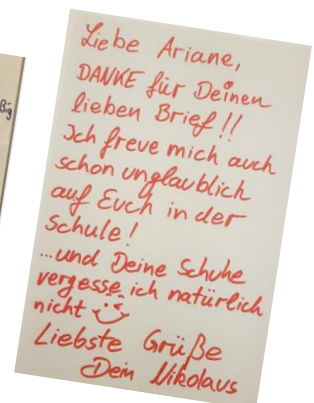 Liebe Ariane,
DANKE für Deinen
lieben Brief!!
Ich freue mich auch
schon unglaublich
auf Euch in der
Schule!
...und Deine Schuhe
vergesse ich natürlich
nicht
Liebste Grüße
Dein Nikolaus